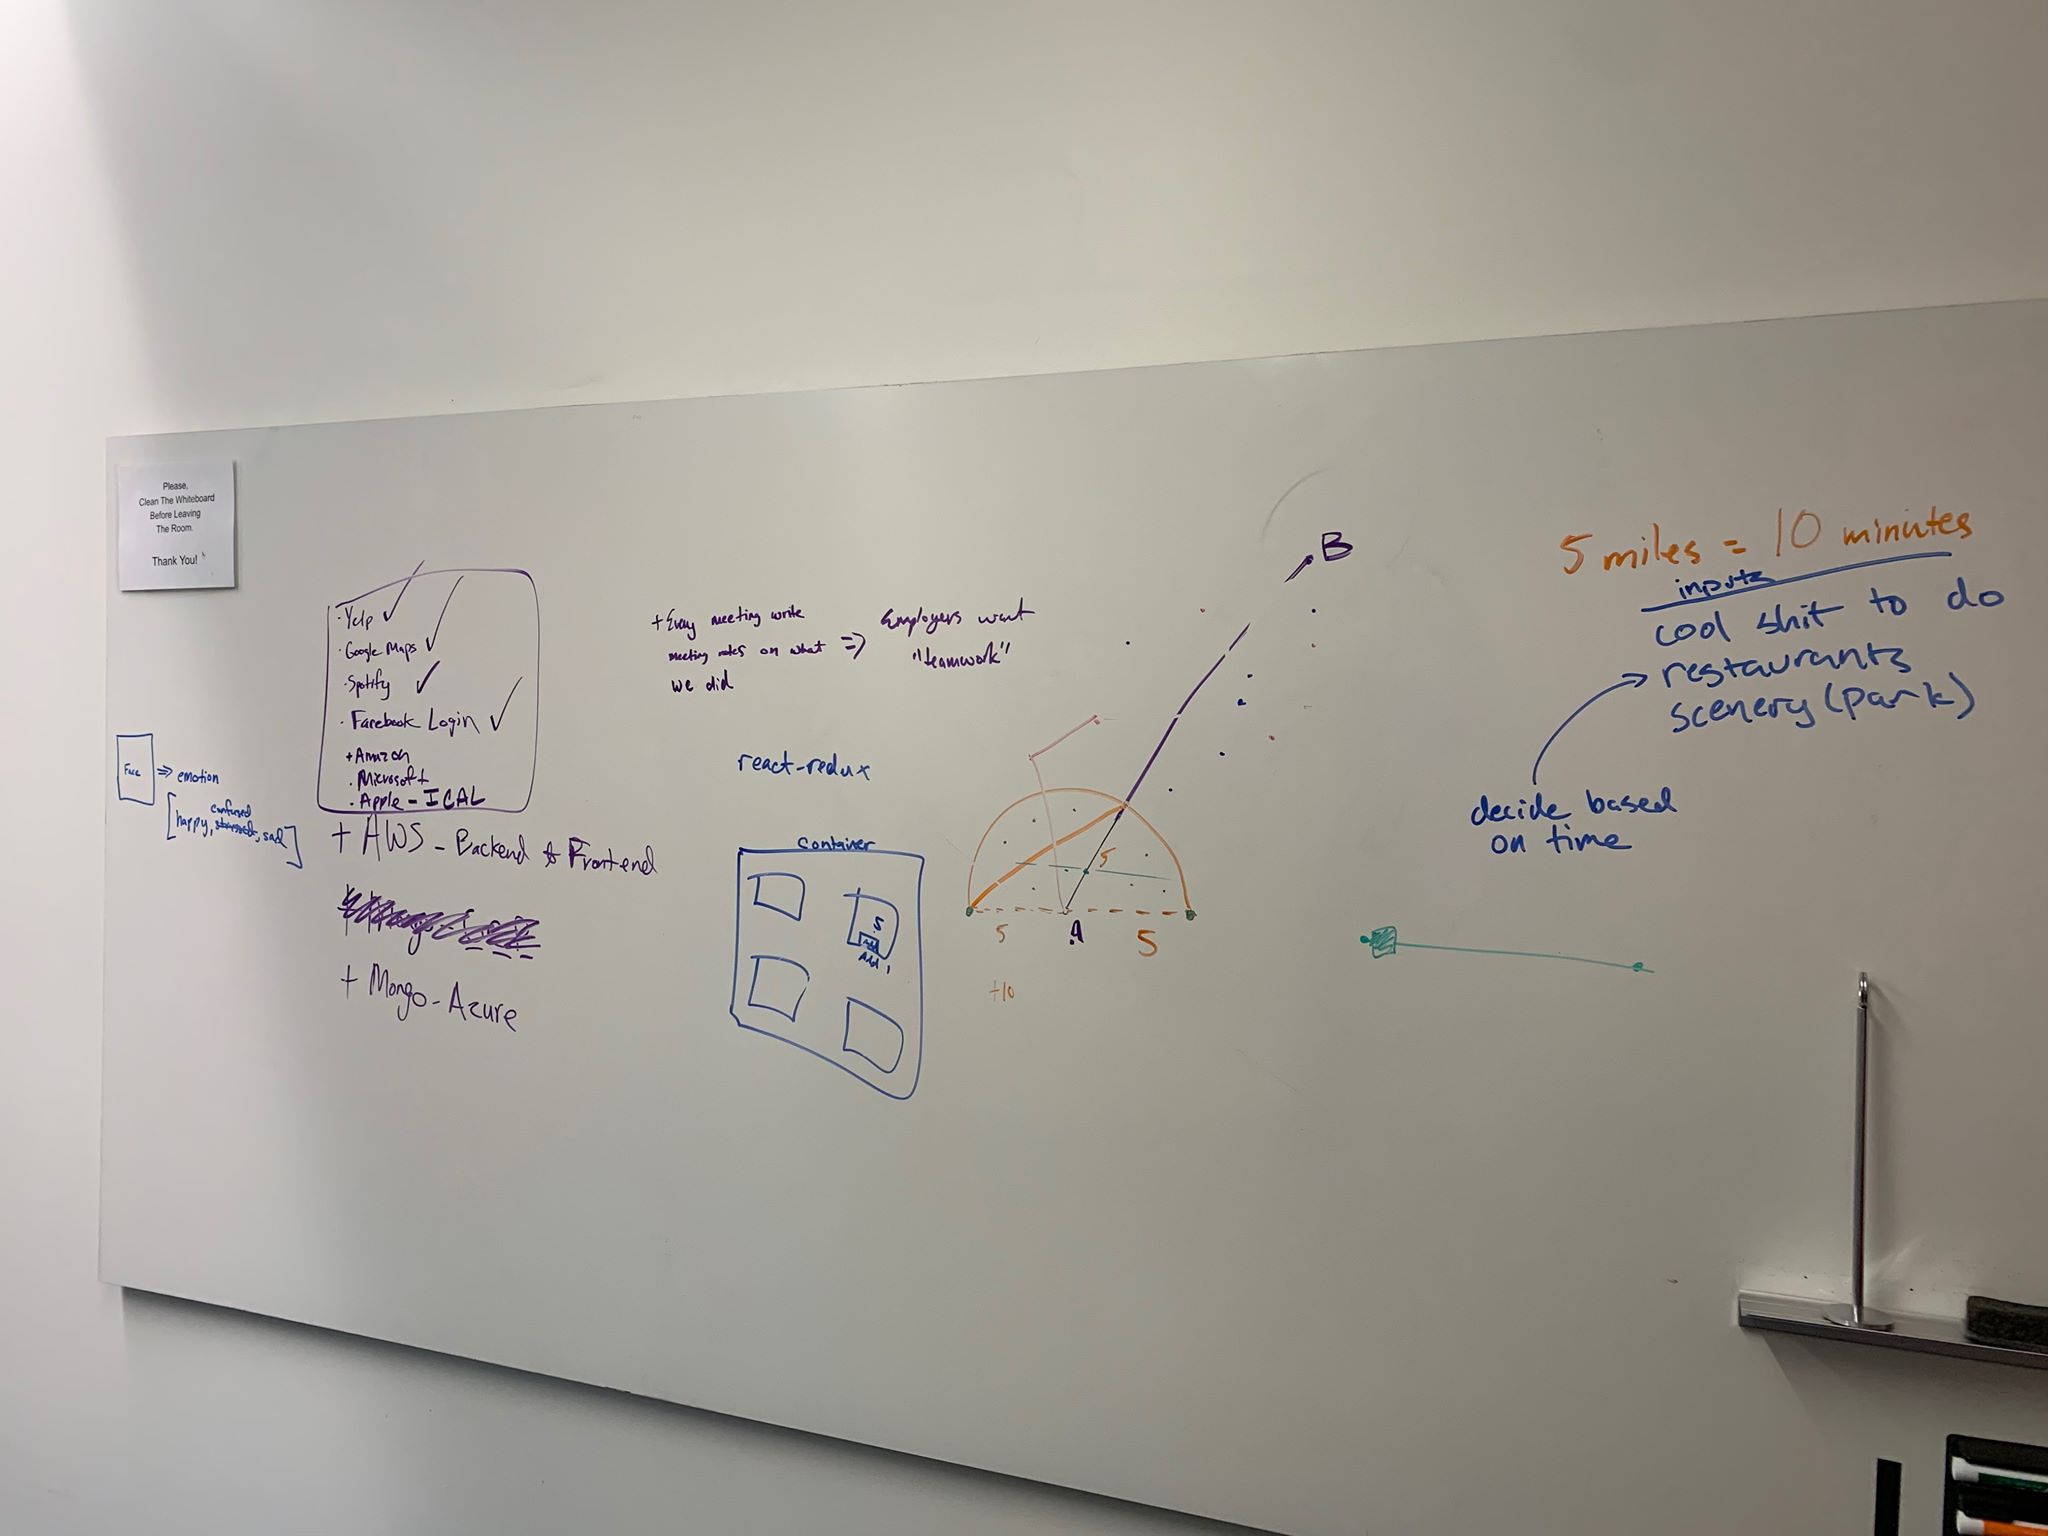 Please,
Clean The Whiteboard
Before Leaving
The Room.
Thank You!
Face => emotion
[happy, confused, sad]
· Yelp ✓
· Google Maps ✓
· Spotify ✓
· Facebook Login ✓
+ Amazon
· Microsoft
· Apple - ICAL
+ AWS - Backend & Frontend
+ Mongo - Azure
+ Every meeting write
meeting notes on what
we did
=> Employers want
"teamwork"
react-redux
Container
5
Add 1
B
5
5
A
5
+10
5 miles = 10 minutes
inputs
cool shit to do
restaurants
scenery (park)
decide based
on time